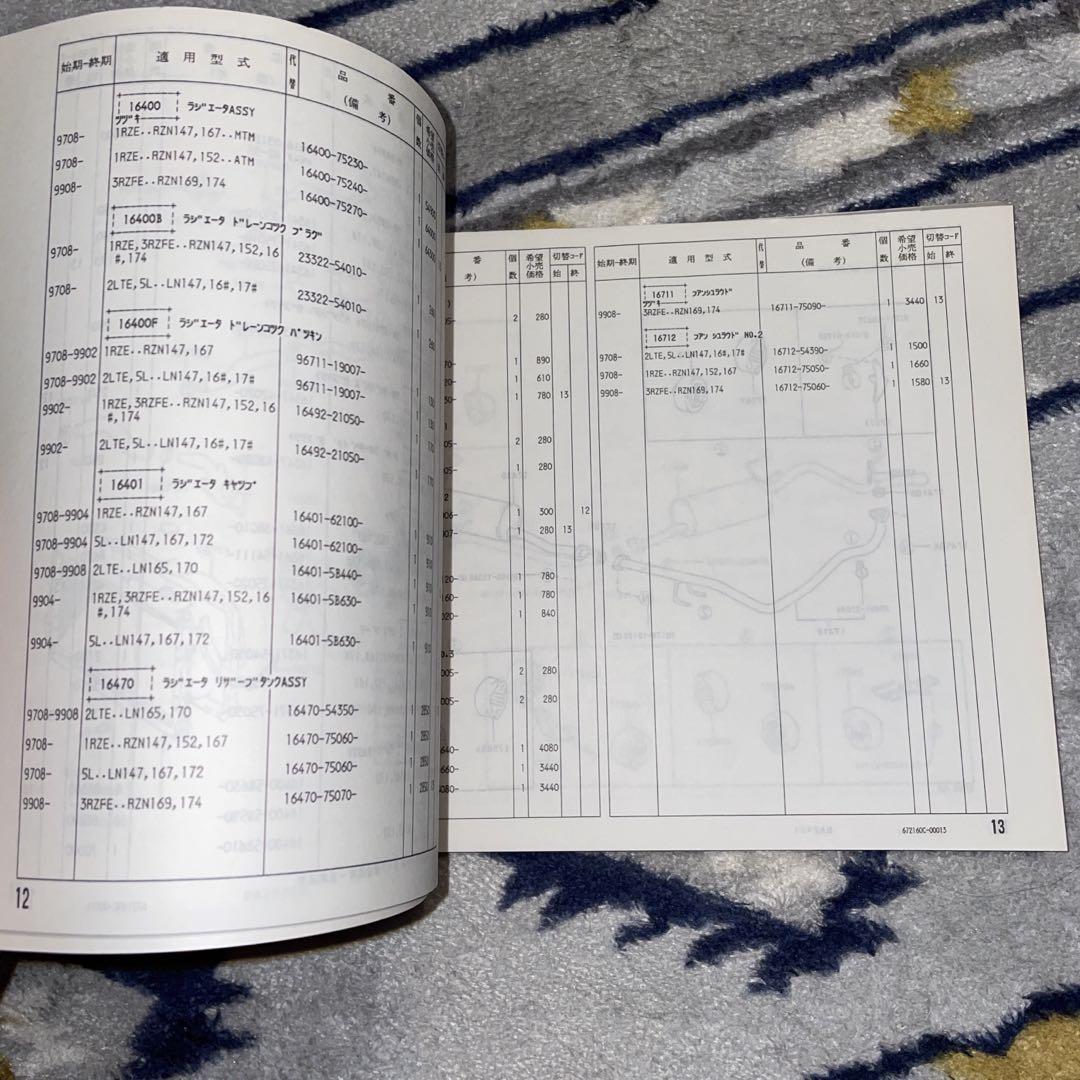 始期-終期 適用型式 代替 品番 (備考) 個数 希望小売価格
16400 ラジエータASSY
ツヅキ
9708- 1RZE..RZN147,167..MTM 16400-75230-
9708- 1RZE..RZN147,152..ATM 16400-75240-
9908- 3RZFE..RZN169,174 16400-75270-
16400B ラジエータ ドレーンコツク プラグ
9708- 1RZE,3RZFE..RZN147,152,16 23322-54010-
#,174
9708- 2LTE,5L..LN147,16#,17# 23322-54010-
16400F ラジエータ ドレーンコツク パツキン
9708-9902 1RZE..RZN147,167 96711-19007-
9708-9902 2LTE,5L..LN147,16#,17# 96711-19007-
9902- 1RZE,3RZFE..RZN147,152,16 16492-21050-
#,174
9902- 2LTE,5L..LN147,16#,17# 16492-21050-
16401 ラジエータ キヤツプ
9708-9904 1RZE..RZN147,167 16401-62100-
9708-9904 5L..LN147,167,172 16401-62100-
9708-9908 2LTE..LN165,170 16401-5B440-
9904- 1RZE,3RZFE..RZN147,152,16 16401-5B630-
#,174
9904- 5L..LN147,167,172 16401-5B630-
16470 ラジエータ リザーブタンクASSY
9708-9908 2LTE..LN165,170 16470-54350- 1 2850
9708- 1RZE..RZN147,152,167 16470-75060- 1 2850
9708- 5L..LN147,167,172 16470-75060- 1 2850
9908- 3RZFE..RZN169,174 16470-75070- 1 2850
12
番 考) 個数 希望小売価格 切替コード 始 終
2 280
1 890
1 610
1 780 13
2 280
1 280
1 300 12
1 280 13
1 780
1 780
1 840
2 280
2 280
1 4080
1 3440
1 3440
始期-終期 適用型式 代替 品番 (備考) 個数 希望小売価格 切替コード 始 終
16711 フアンシユラウド
ツヅキ
9908- 3RZFE..RZN169,174 16711-75090- 1 3440 13
16712 フアン シユラウド NO.2
9708- 2LTE,5L..LN147,16#,17# 16712-54390- 1 1500
9708- 1RZE..RZN147,152,167 16712-75050- 1 1660
9908- 3RZFE..RZN169,174 16712-75060- 1 1580 13
672160C-00013
13